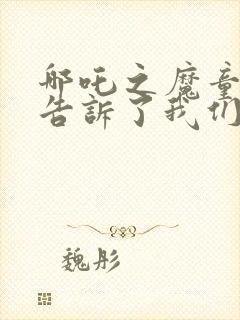 哪吒之魔童
告訴了我们
魏彤